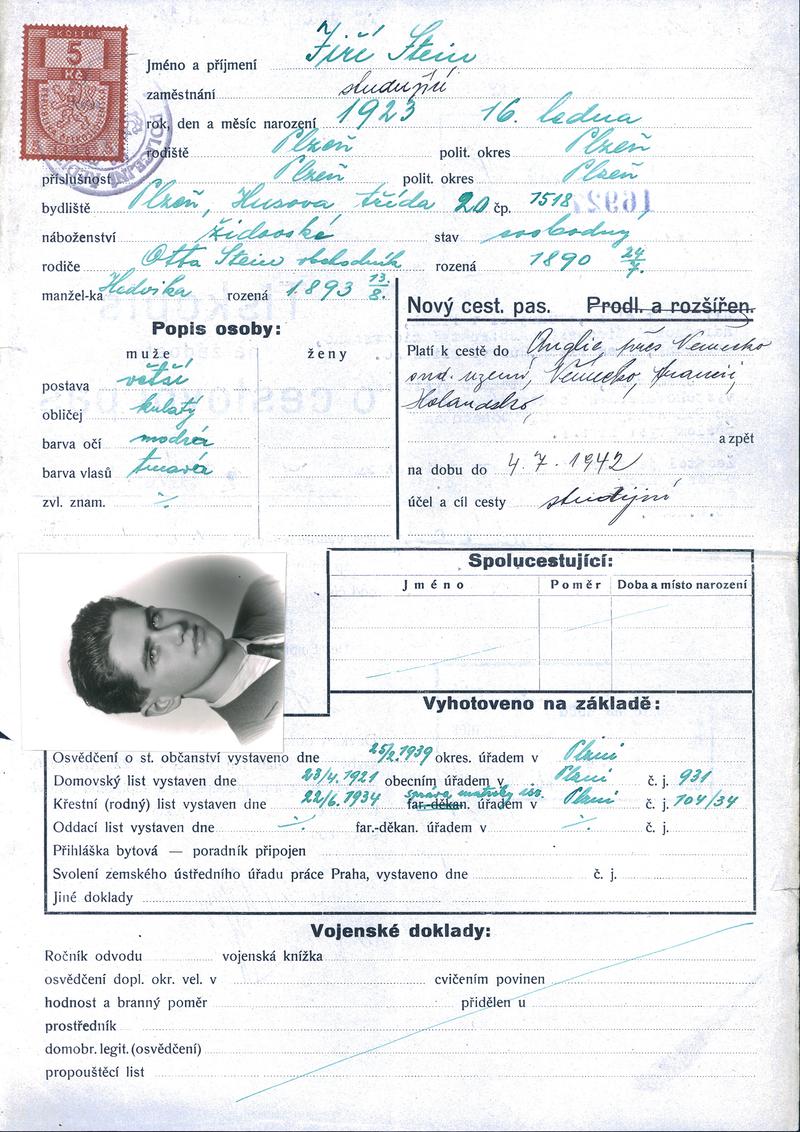 KOLEK
5
Kč
Jméno a příjmení Jiří Stein
zaměstnání studující
rok, den a měsíc narození 1923 16. ledna
rodiště Plzeň polit. okres Plzeň
příslušnost Plzeň polit. okres Plzeň
bydliště Plzeň, Husova třída 20 čp. 1518
náboženství židovské stav svobodný
rodiče Otto Stein obchodník rozená 1890 24/7.
manžel-ka Hedvika rozená 1893 13/8.
Nový cest. pas. Prodl. a rozšířen.
Popis osoby:
muže ženy
postava větší
obličej kulatý
barva očí modrá
barva vlasů tmavá
zvl. znam. ÷
Platí k cestě do Anglie přes Německo
Německo, Francii,
Holandsko,
a zpět
na dobu do 4. 7. 1942
účel a cíl cesty studijní
Spolucestující:
Jméno Poměr Doba a místo narození
Vyhotoveno na základě:
Osvědčení o st. občanství vystaveno dne 25/2.1939 okres. úřadem v Plzni
Domovský list vystaven dne 23/4.1921 obecním úřadem v Plzni č. j. 931
správa matriky isr.
Křestní (rodný) list vystaven dne 22/6.1934 far.-děkan. úřadem v Plzni č. j. 104/34
Oddací list vystaven dne ÷ far.-děkan. úřadem v ÷ č. j.
Přihláška bytová — poradník připojen
Svolení zemského ústředního úřadu práce Praha, vystaveno dne č. j.
Jiné doklady
Vojenské doklady:
Ročník odvodu vojenská knížka
osvědčení dopl. okr. vel. v cvičením povinen
hodnost a branný poměr přidělen u
prostředník
domobr. legit. (osvědčení)
propouštěcí list